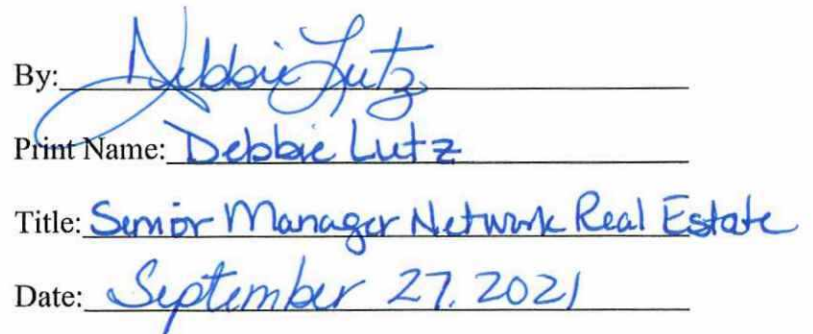 By: Debbie Lutz
Print Name: Debbie Lutz
Title: Senior Manager Network Real Estate
Date: September 27, 2021